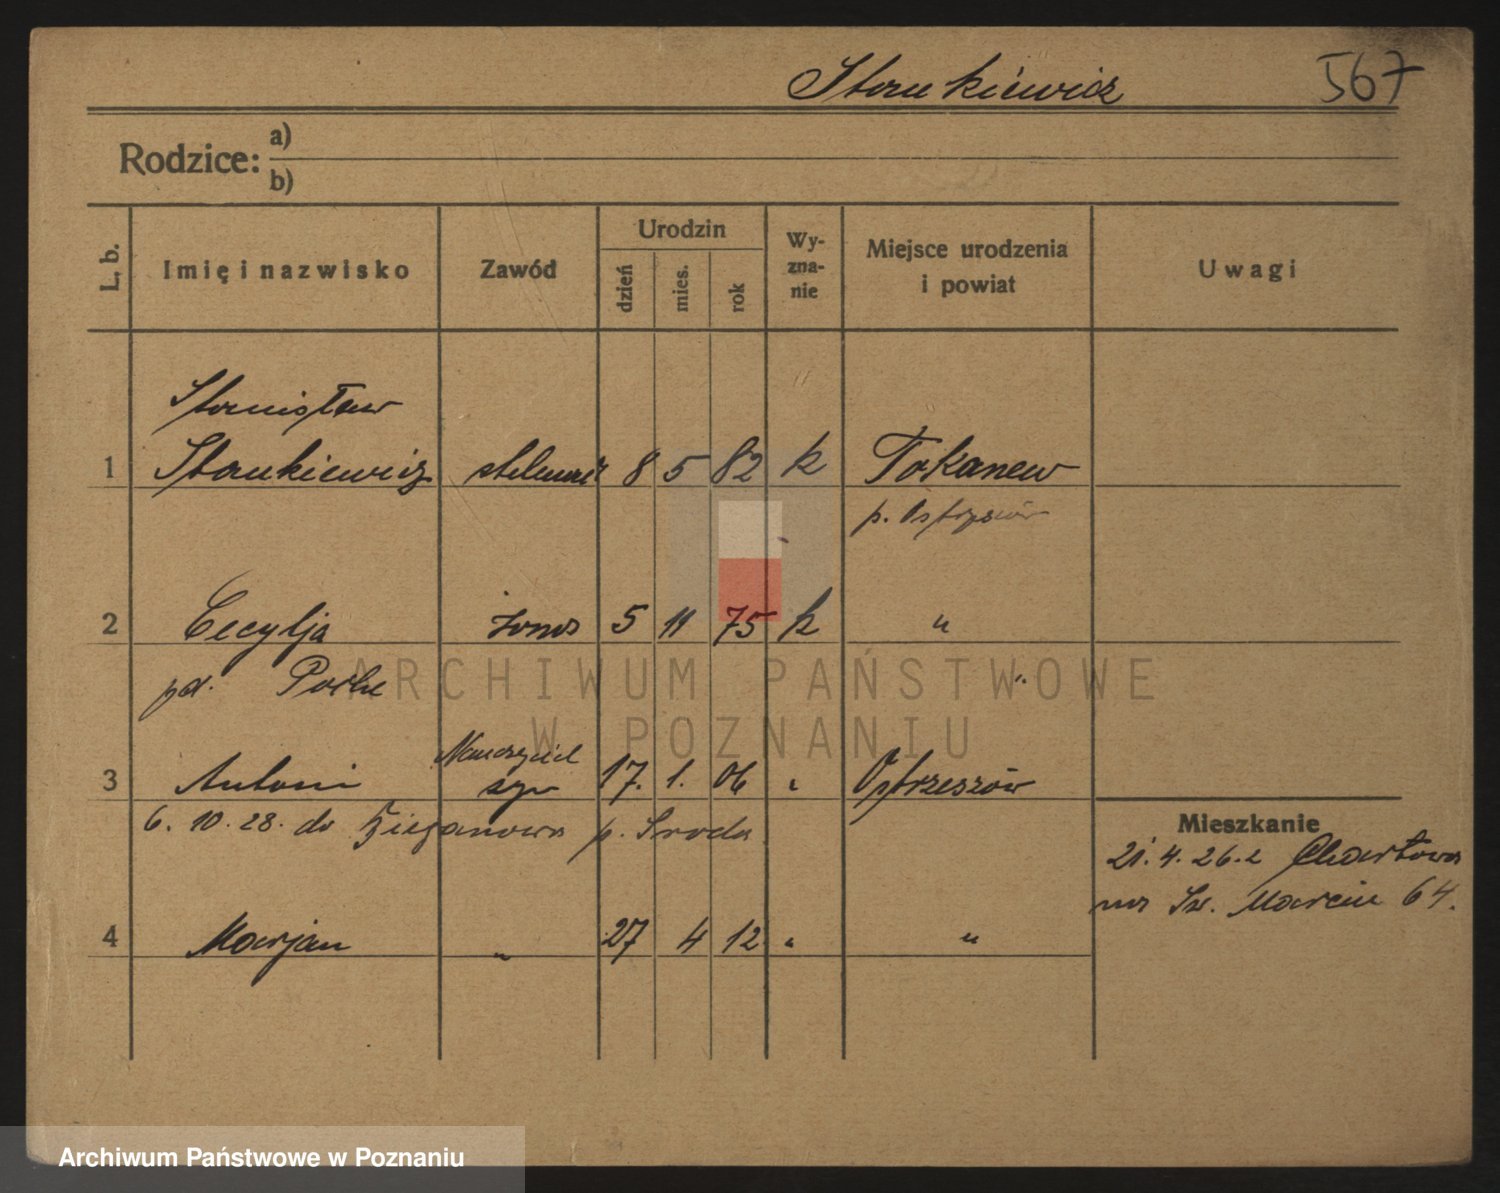 Stankiewicz 567
Rodzice: a)
b)
L. b. Imię i nazwisko Zawód Urodzin dzień mies. rok Wy-zna-nie Miejsce urodzenia i powiat Uwagi
Stanisław
1 Stankiewicz 8 5 82 k Tokarzew
p. Ostrzeszów
2 Cecylja żona 5 11 75 k "
pd. "
Nauczyciel
3 Antoni syn 17. 1. 06 " Ostrzeszów
6. 10. 28. do p. Sroda
Mieszkanie
21. 4. 26. z Chartowa
na Św. Marcin 64.
4 Marjan " 27 4 12 " "
ARCHIWUM PAŃSTWOWE
W POZNANIU
Archiwum Państwowe w Poznaniu